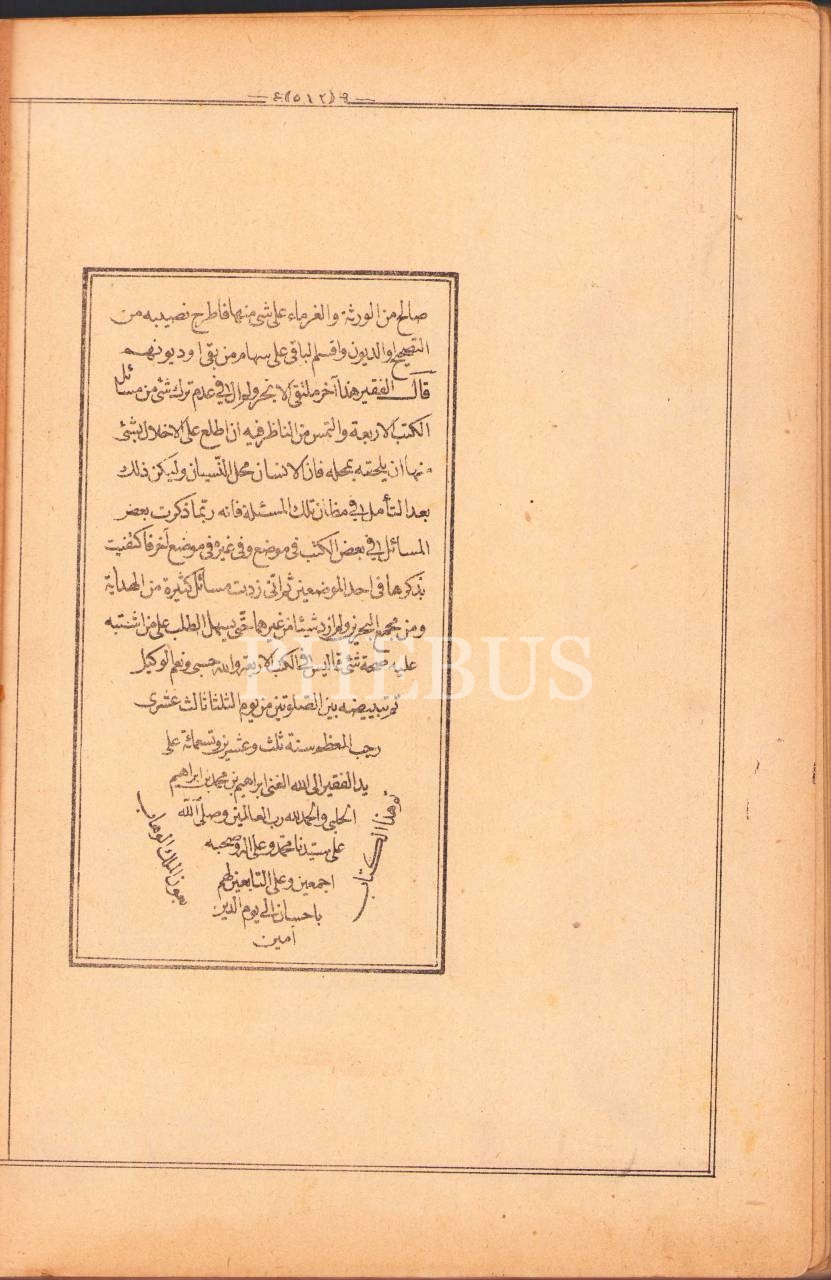 ﴿٥١٢﴾
صالح من الورثة والغرماء على شئ منها فاطرح نصيبه من
التصحيح او الديون واقسم الباقى على سهام من بقى او ديونهم
قال الفقير هذا آخر ملتقى الابحر ولم ال فى عدم ترك شئ من مسائل
الكتب الاربعة والتمس من الناظر فيه ان اطلع على الاخلال بشئ
منها ان يلحقه بمحله فان الانسان محل النسيان وليكن ذلك
بعد التأمل فى مظان تلك المسئلة فانه ربما ذكرت بعض
المسائل فى بعض الكتب فى موضع وفى غيره فى موضع آخر فاكتفيت
بذكرها فى احد الموضعين ثم انى زدت مسائل كثيرة من الهداية
ومن مجمع البحرين ولم ازد شيئا من غيرها حتى يسهل الطلب على من اشتبه
عليه صحة شئ مما ليس فى الكتب الاربعة والله حسبى ونعم الوكيل
تم تبييضه بين الصلوتين من يوم الثلثا ثالث عشرى
رجب المعظم سنة ثلث وعشرين وتسعمائة على
يد الفقير الى الله الغنى ابراهيم بن محمد بن ابراهيم
الحلبى والحمد لله رب العالمين وصلى الله
على سيدنا محمد وعلى اله وصحبه
اجمعين وعلى التابعين لهم
باحسان الى يوم الدين
آمين
تم هذا الكتاب
بعون الملك الوهاب
PHEBUS